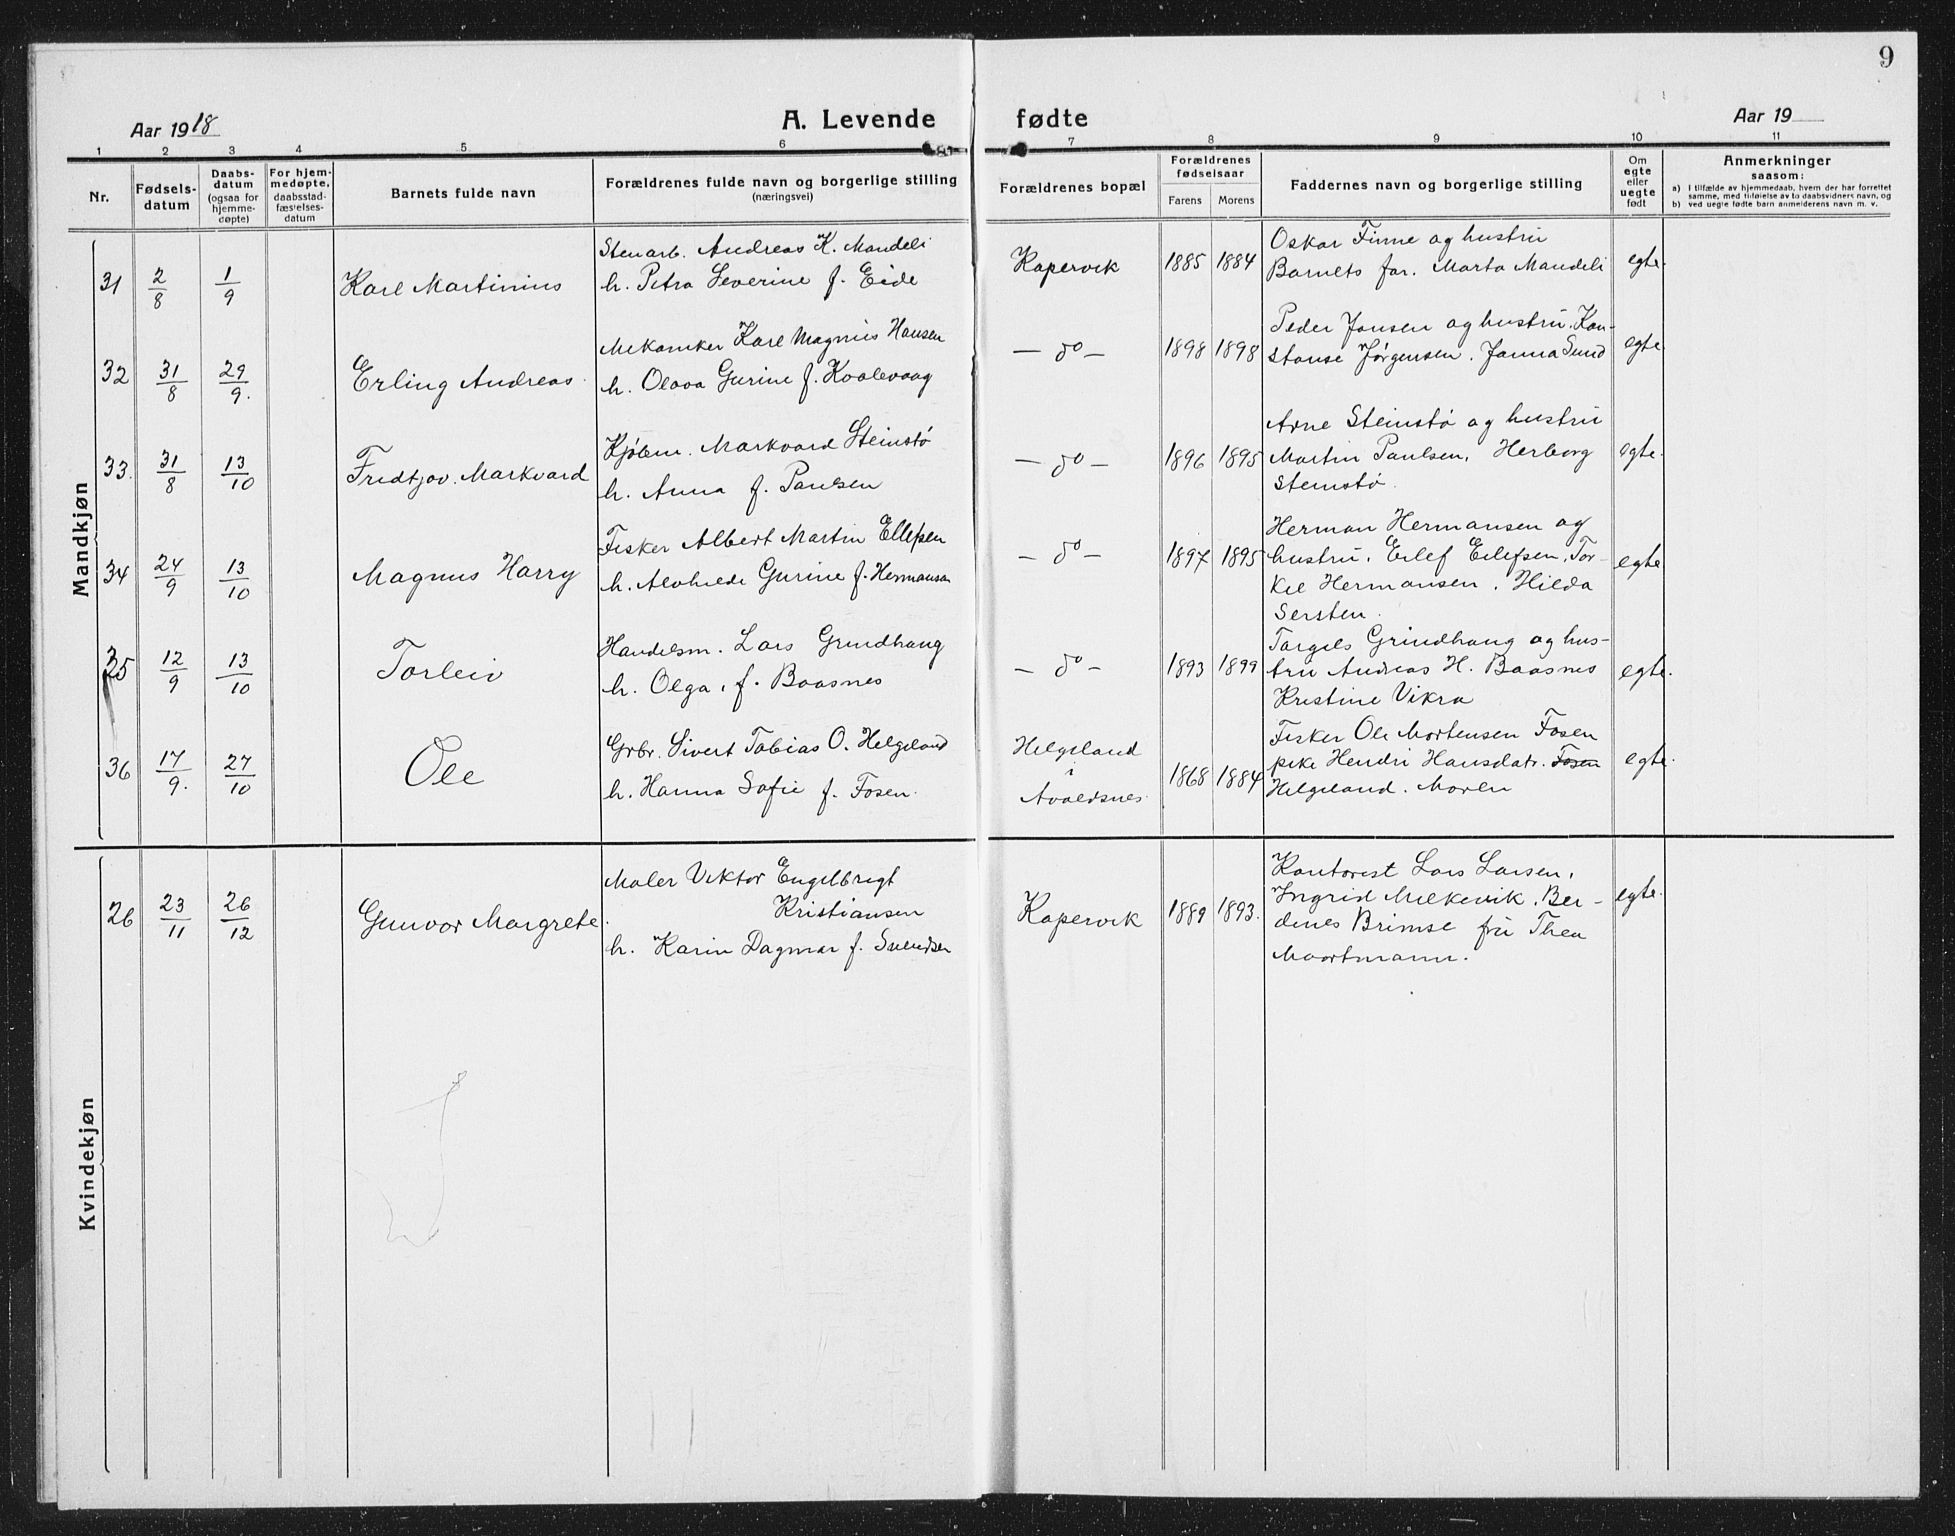 9
Aar 1918
A. Levende fødte
Aar 19
1 2 3 4 5 6 7 8 9 10 11
Nr.
Fødsels-
datum
Daabs-
datum
(ogsaa for
hjemme-
døpte)
For hjem-
medøpte,
daabsstad-
fæstelses-
datum
Barnets fulde navn
Forældrenes fulde navn og borgerlige stilling
(næringsvei)
Forældrenes bopæl
Forældrenes
fødselsaar
Farens Morens
Faddernes navn og borgerlige stilling
Om
egte
eller
uegte
født
Anmerkninger
saasom:
a) I tilfælde av hjemmedaab, hvem der har forrettet
samme, med tilføielse av to daabsvidners navn, og
b) ved uegte fødte barn anmelderens navn m. v.
Mandkjøn
31 2/8 1/9 Karl Martinius
Stenarb. Andreas K. Mandeli
h. Petra Severine f. Eide
Kopervik 1885 1884
Oskar Finne og hustru
Barnets far. Marta Mandeli
egte.
32 31/8 29/9. Erling Andreas
Mekaniker Karl Magnus Hansen
h. Olava Gurine f. Kvalevaag
— do — 1898 1898
Peder Jansen og hustru. Kon-
stanse Jørgensen. Janna Sund
egte
33. 31/8 13/10 Fredtjov. Markvard
Kjøbm. Markvard Steinstø
h. Anna f. Paulsen
— do — 1896 1895
Arne Steinstø og hustru
Martin Paulsen, Herborg
Steinstø.
egte.
34 24/9 13/10 Magnus Harry
Fisker Albert Martin Ellefsen
h. Alvhilde Gurine f. Hermansen
— do — 1897 1895
Herman Hermansen og
hustru. Eilef Eilefsen, Tor-
kel Hermansen. Hilda
Sersten.
egte
35 12/9 13/10 Torleiv
Handelsm. Lars Grindhaug
h. Olga, f. Baasnes
— do — 1893 1899
Torgels Grindhaug og hus-
tru Andreas H. Baasnes
Kristine Vikra
egte.
36 17/9. 27/10 Ole
Grbr. Sivert Tobias O. Helgeland
h. Hanna Sofie f. Fosen.
Helgeland
i
Avaldsnes. 1868 1884
Fisker Ole Mortensen Fosen
pike Hendri Hansdatr. Fosen
Helgeland. Moren
egte.
Kvindekjøn
26 23/11 26/12 Gunvor Margrete.
Maler Viktor Engelbregt
Kristiansen
h. Karin Dagmar f. Svendsen
Kopervik 1889 1893.
Kontorist Lars Larsen,
Ingrid Melkevik. Ber-
dines Brimse fru Thea
Moortmann.
egte.